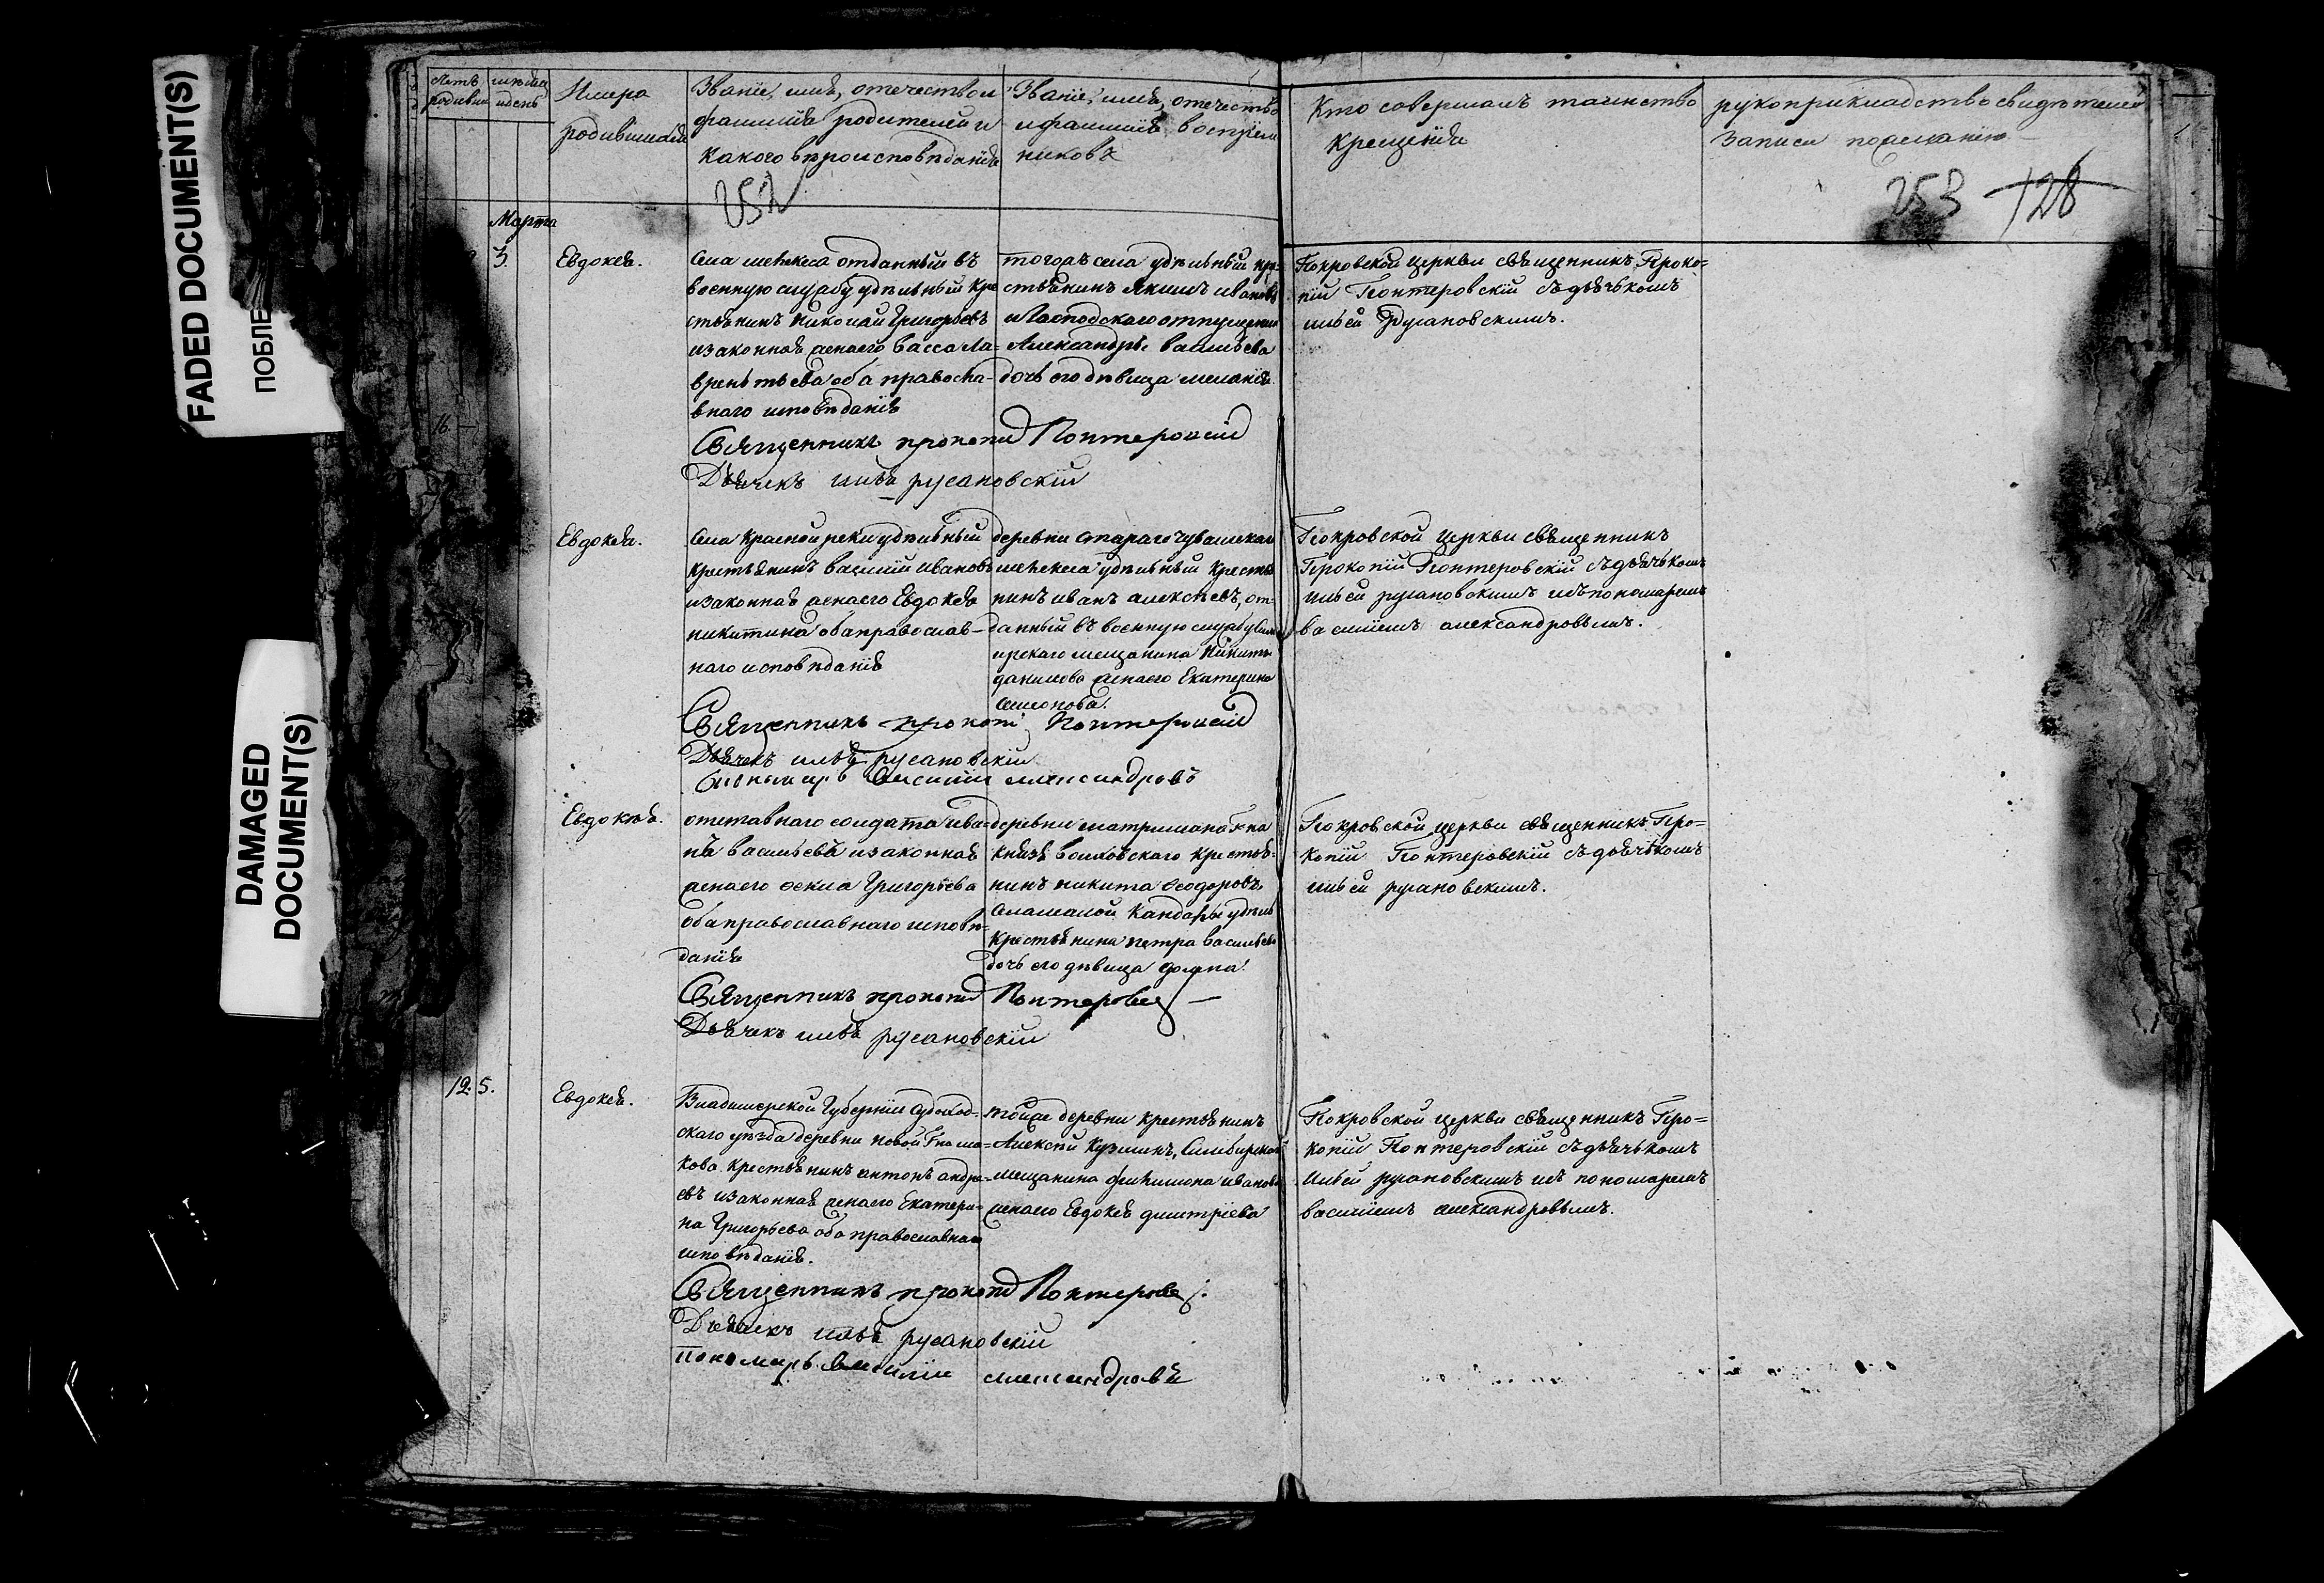 FADED DOCUMENT(S)
ПОБЛЕ
DAMAGED
DOCUMENT(S)
Имѣна
родившихся
Званіе, имя, отечество и
фамилія родителей и
какого вѣроисповѣданія
Званіе, имя, отечество
и фамилія воспріем
никовъ
Кто совершалъ таинство
крещенія
рукоприкладство свидѣтелей
записи по желанію
252
253 128
Марта
3.
Евдокея.
Села мелекеса отданный въ
военную службу удѣльный кре
стьянинъ Николай Григорьевъ
и законная жена его Васса Ла-
врентьева оба правосла-
внаго исповѣданія
тогожъ села удѣльный кре-
стьянинъ Якимъ Ивановъ
и Господского отпущенника
Александръ Васильева
дочь его дѣвица
Покровской церкви священникъ Проко-
пій Понтеровскій съ дьячькомъ
Ильей Русановскимъ.
Священникъ Прокопій Понтеровскій
Дьячекъ Илья Русановскій
16
Евдокея.
Села Красной реки удѣльный
крестьянинъ Василій Ивановъ
и законная жена его Евдокея
Никитина оба православ-
наго исповѣданія
деревни стараго чувашскаго
мелекеса удѣльный крестья
нинъ Иванъ Алексѣевъ, от-
данный въ военную службу
мещанина Никиты
Данилова жена его Екатерина
Семенова.
Покровской церкви священникъ
Прокопій Понтеровскій съ дьячькомъ
Ильей Русановскимъ и съ пономаремъ
Василіемъ Александровымъ.
Священникъ Прокопій Понтеровскій
Дьячекъ Илья Русановскій
Пономарь Василій Александровъ
Евдокея.
отставнаго солдата Ива-
на Васильева и законная
жена его Фекла Григорьева
оба православнаго исповѣ-
данія
деревни
князя Волховскаго крестья-
нинъ Никита Ѳеодоровъ,
села малой Кандалы удѣль
крестьянина Петра Васильева
дочь его дѣвица Домна.
Покровской церкви священникъ Про-
копій Понтеровскій съ дьячькомъ
Ильей Русановскимъ.
Священникъ Прокопій Понтеровскій
Дьячекъ Илья Русановскій
12. 5.
Евдокея.
Владимерской Губерніи Судогод-
скаго уѣзда деревни новой
кова крестьянинъ Антонъ Андре-
евъ и законная жена его Екатери-
на Григорьева оба православнаго
исповѣданія.
тойже деревни крестьянинъ
Алексѣй Кузминъ, Симбирскаго
мещанина Филимона Иванова
жена его Евдокея Димитріева
Покровской церкви священникъ Про-
копій Понтеровскій съ дьячькомъ
Ильей Русановскимъ и съ пономаремъ
Василіемъ Александровымъ.
Священникъ Прокопій Понтеровскій
Дьячекъ Илья Русановскій
Пономарь Василій Александровъ